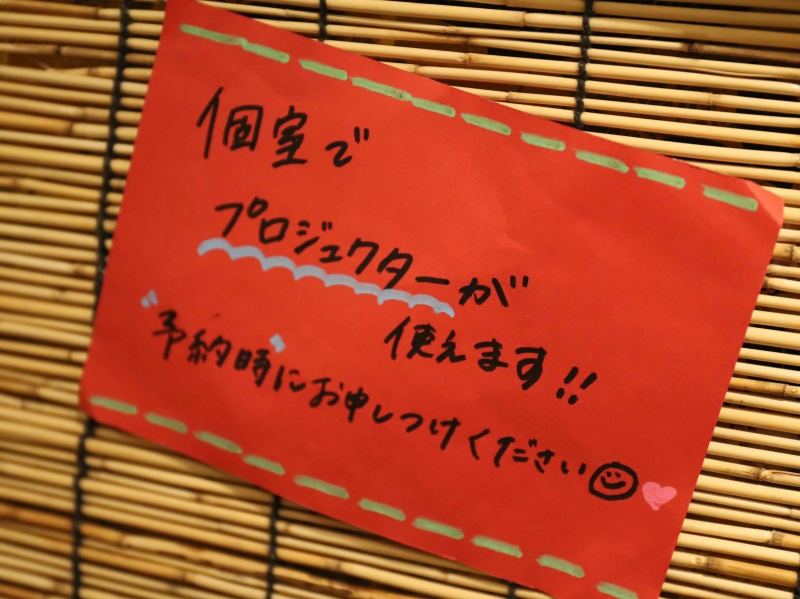 個室で
プロジェクターが
使えます!!
"予約時"にお申しつけください